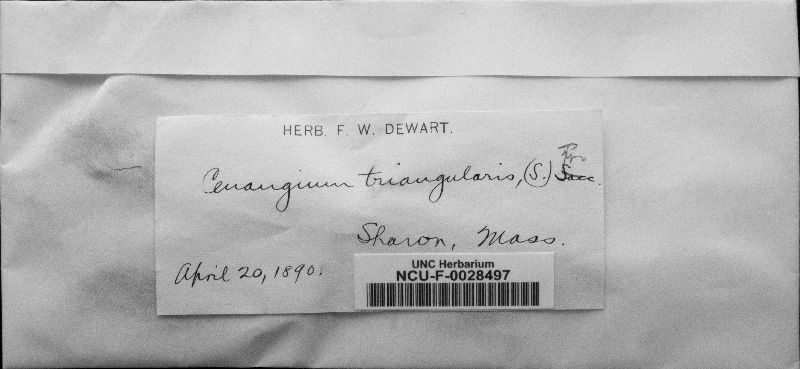 HERB. F. W. DEWART.
Cenangium triangularis, (S.) Fr.
Sharon, Mass.
April 20, 1890.
UNC Herbarium
NCU-F-0028497